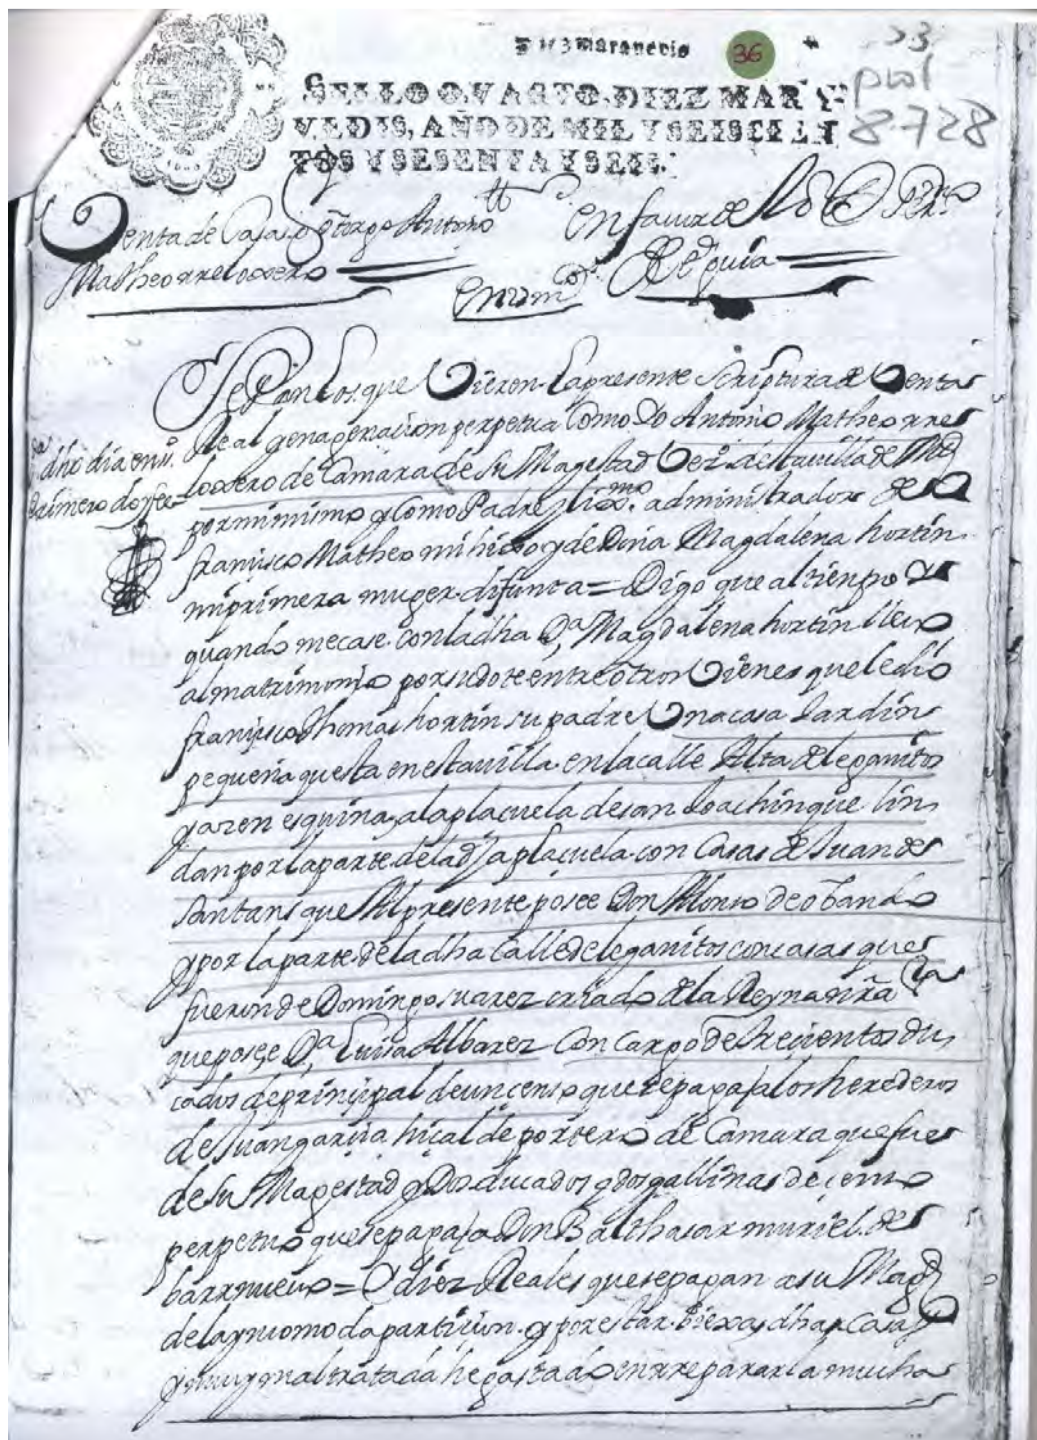 maravedis
36
33
prot
8.728
SELLO QVARTO, DIEZ MARA
VEDIS, AÑO DE MIL Y SEISCIEN
TOS Y SESENTA Y SEIS.
Venta de Casa q otorgo Antonio
Matheo rrelojero
en favor de
en 22 m
Sepan los que Vieren la presente Scriptura de Venta
Real y enagenacion perpetua Como Yo Antonio Matheo rre
dho dia en
primero
loxero de Camara de Su Magestad Vez.º desta uilla de Md
por mi mismo y Como Padre y lix.mo administrador de
françisco Matheo mi hixo y de Doña Magdalena hortin
mi primera muger difunta = Digo que al tiempo
quando me case con la dha D.ª Magdalena hortin lleuo
al matrimonio por su dote entre otros Vienes que le dio
françisco Thomas hortin su padre Vna casa Jardin
pequeña que esta en esta uilla en la calle Alta de leganitos
y azen esquina a la plaçuela de san Joachin que lin
dan por la parte de la dha plaçuela con Casas de Juan de
santans que Al presente posee Don Alonso de obando
y por la parte de la dha Calle de leganitos con casas que
fueron de Domingo suarez criado de la Reyna nrã
que posee D.ª Luisa Albarez Con cargo de treçientos du
cados de prinçipal de un censo que se paga a los herederos
de Juan garçia hical de portero de Camara que fue
de Su Magestad y Dos ducados y dos gallinas de çenso
perpetuo que se paga a Don Balthasar muriel de
barrnueuo = Y diez Reales que se pagan a su Magd
de la yncomoda particion. y por estar biexa dha Casa
y muy mal tratada he gastado en rrepararla mucha